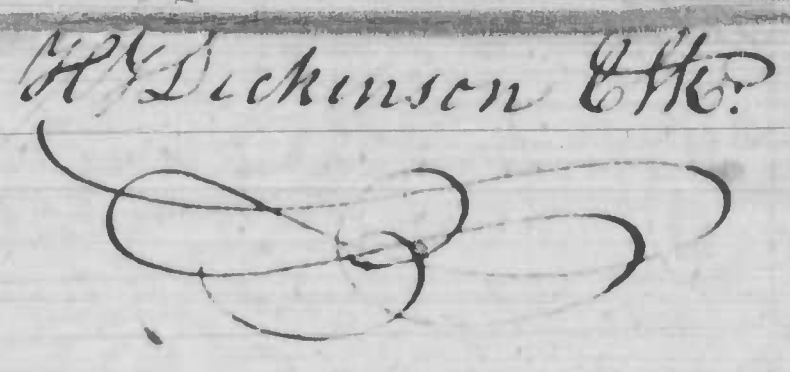 H Y Dickinson Clk.